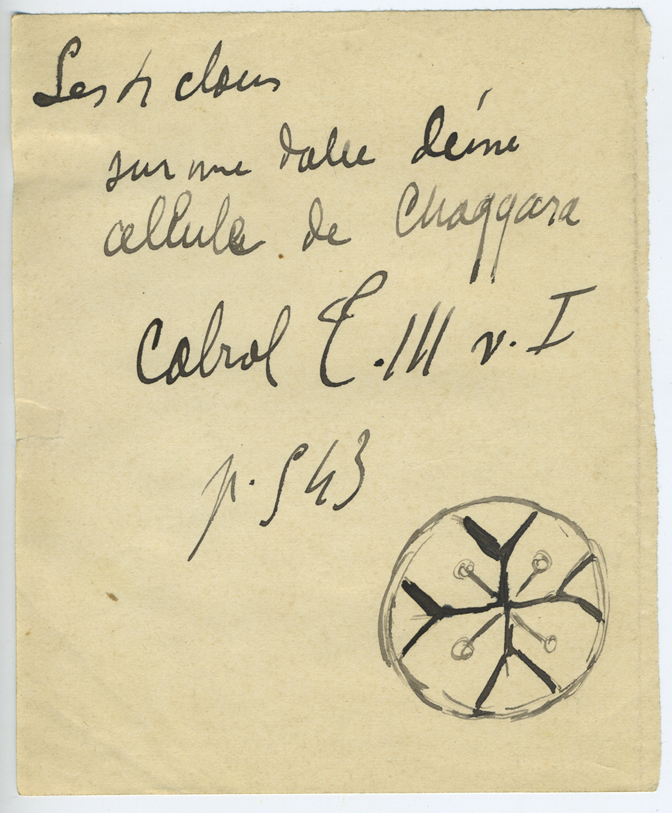 Les 4 clous
sur une dalle d'une
cellule de Chaggara
Cabrol T. III v. I
p. 543